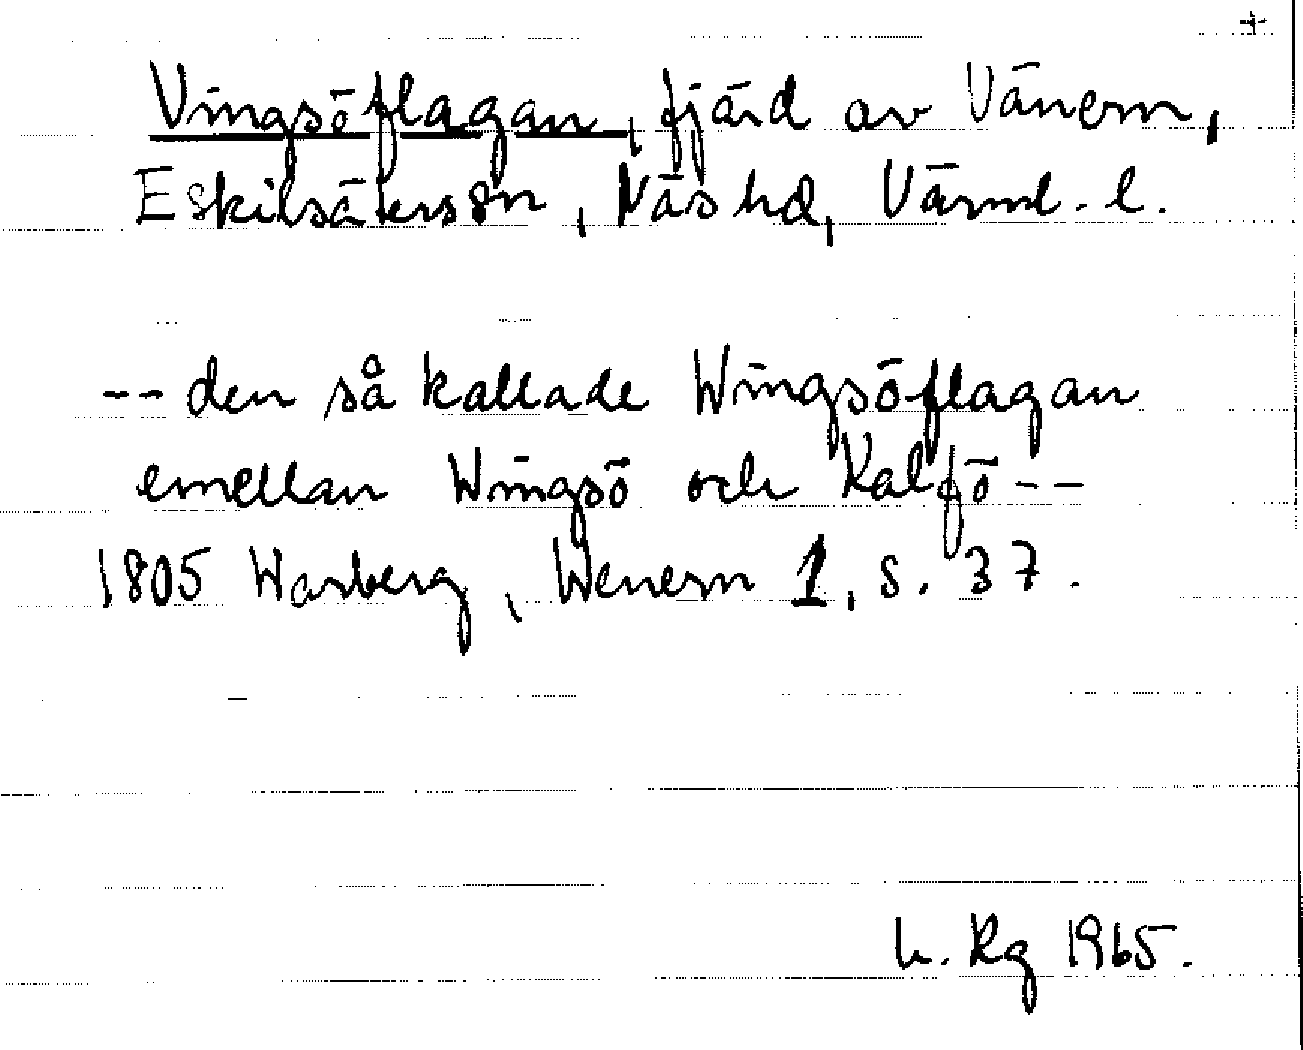 +
Vingsöflagan, fjärd av Vänern,
Eskilsäters sn, Näs hd, Värml. l.
-- den så kallade Wingsöflagan
emellan Wingsö och Kalfö --
1805 Warberg, Wenern 1, s. 37.
L. Rg 1965.